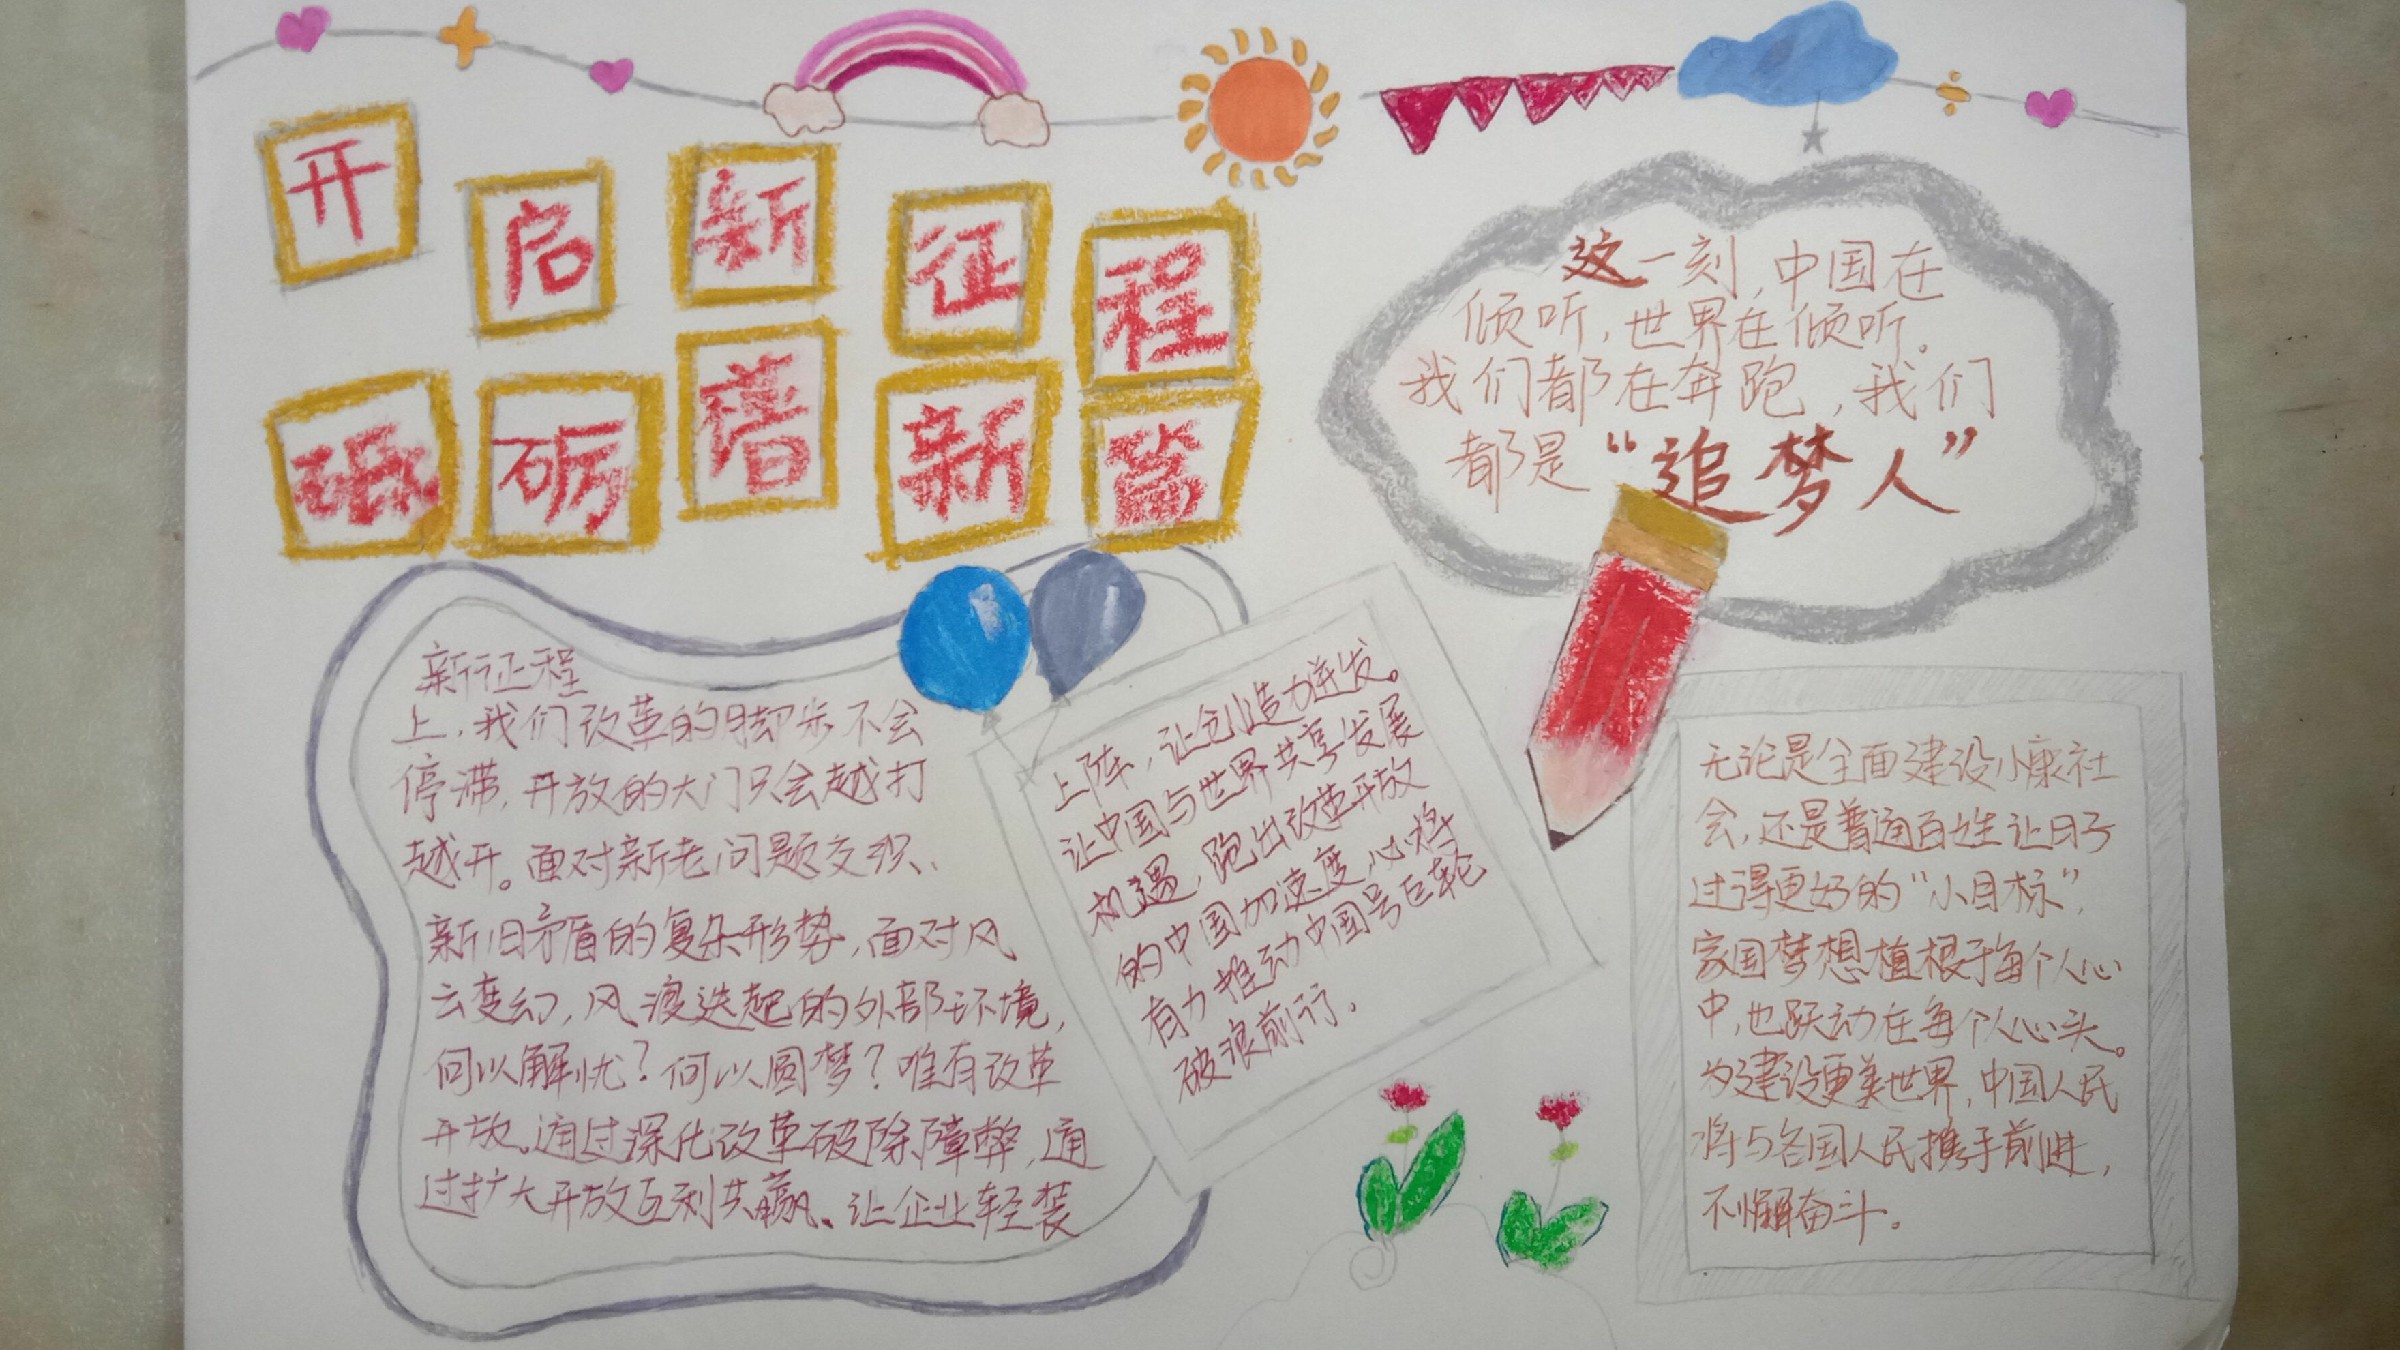 开启新征程
砥砺谱新篇
这一刻,中国在
倾听,世界在倾听。
我们都在奔跑,我们
都是“追梦人”
新征程
上,我们改革的脚步不会
停滞,开放的大门只会越打
越开。面对新老问题交织、
新旧矛盾的复杂形势,面对风
云变幻,风浪迭起的外部环境,
何以解忧?何以圆梦?唯有改革
开放。通过深化改革破除障弊,通
过扩大开放互利共赢、让企业轻装
上阵,让创造力迸发。
让中国与世界共享发展
机遇,跑出改革开放
的中国加速度,必将
有力推动中国号巨轮
破浪前行.
无论是全面建设小康社
会,还是普通百姓让日子
过得更好的“小目标”,
家国梦想植根于每个人心
中,也跃动在每个人心头。
为建设更美世界,中国人民
将与各国人民携手前进,
不懈奋斗。